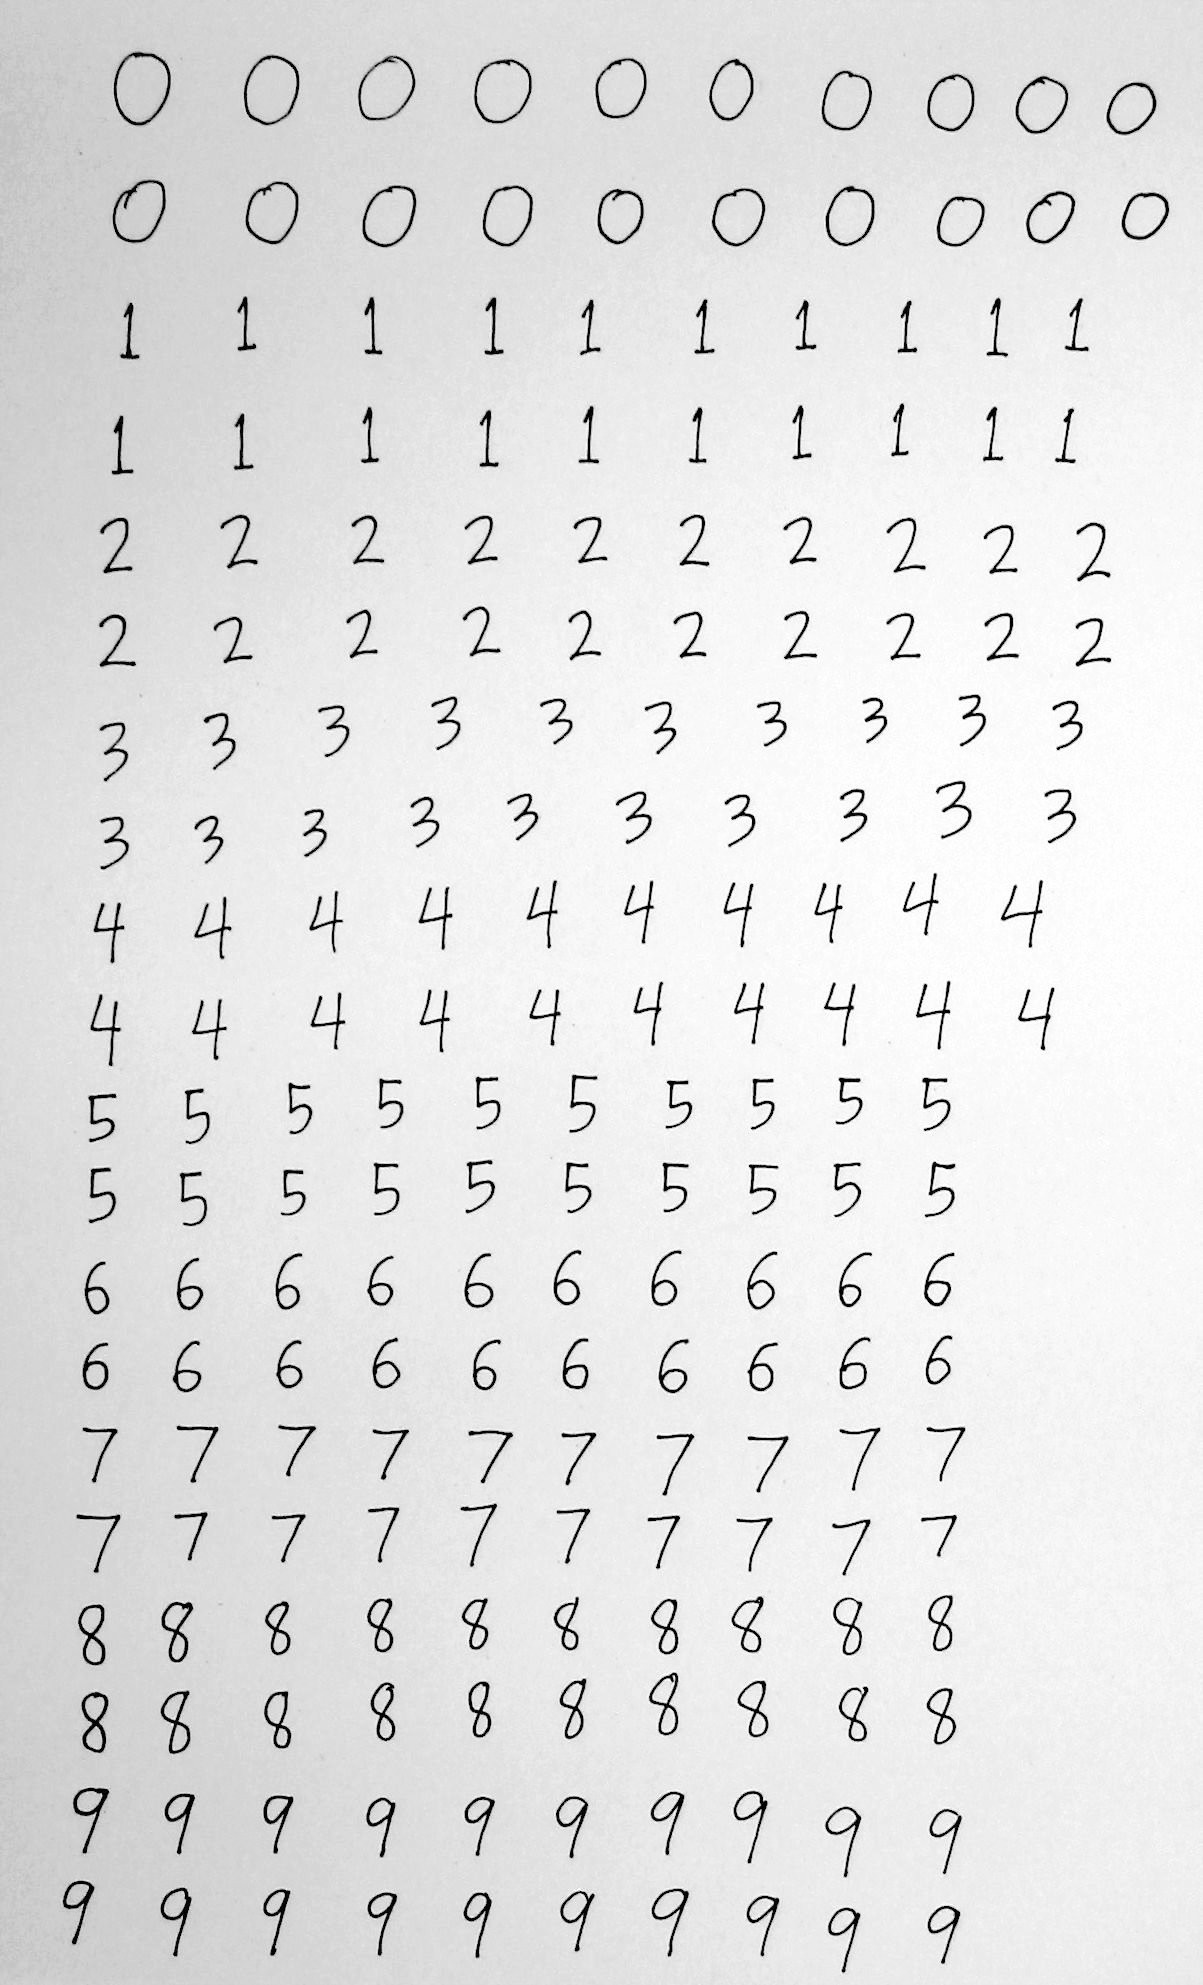 0 0 0 0 0 0 0 0 0 0
0 0 0 0 0 0 0 0 0 0
1 1 1 1 1 1 1 1 1 1
1 1 1 1 1 1 1 1 1 1
2 2 2 2 2 2 2 2 2 2
2 2 2 2 2 2 2 2 2 2
3 3 3 3 3 3 3 3 3 3
3 3 3 3 3 3 3 3 3 3
4 4 4 4 4 4 4 4 4 4
4 4 4 4 4 4 4 4 4 4
5 5 5 5 5 5 5 5 5 5
5 5 5 5 5 5 5 5 5 5
6 6 6 6 6 6 6 6 6 6
6 6 6 6 6 6 6 6 6 6
7 7 7 7 7 7 7 7 7 7
7 7 7 7 7 7 7 7 7 7
8 8 8 8 8 8 8 8 8 8
8 8 8 8 8 8 8 8 8 8
9 9 9 9 9 9 9 9 9 9
9 9 9 9 9 9 9 9 9 9